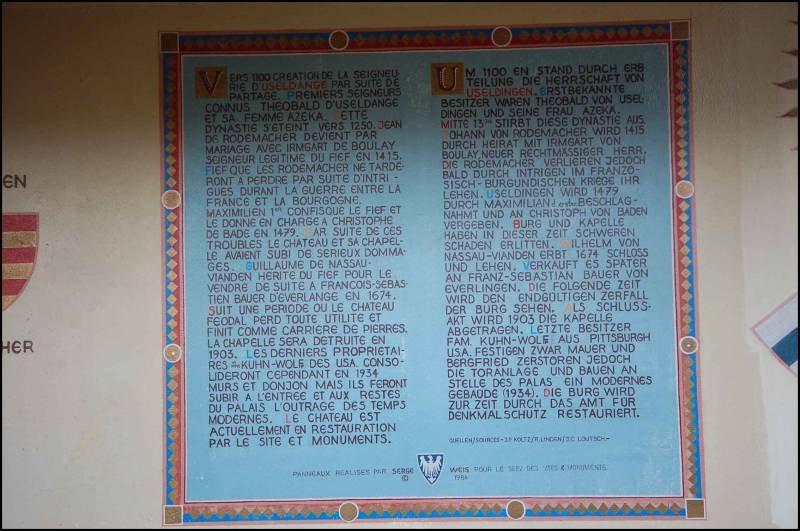 EN
HER
VERS 1100 CREATION DE LA SEIGNEU-
RIE D'USELDANGE PAR SUITE DE
PARTAGE. PREMIERS SEIGNEURS
CONNUS THEOBALD D'USELDANGE
ET SA FEMME AZEKA. CETTE
DYNASTIE S'ETEINT VERS 1250. JEAN
DE RODEMACHER DEVIENT PAR
MARIAGE AVEC IRMGART DE BOULAY
SEIGNEUR LEGITIME DU FIEF EN 1415.
FIEF QUE LES RODEMACHER NE TARDE-
RONT A PERDRE PAR SUITE D'INTRI-
GUES DURANT LA GUERRE ENTRE LA
FRANCE ET LA BOURGOGNE.
MAXIMILIEN 1er CONFISQUE LE FIEF ET
LE DONNE EN CHARGE A CHRISTOPHE
DE BADE EN 1479. PAR SUITE DE CES
TROUBLES LE CHATEAU ET SA CHAPEL-
LE AVAIENT SUBI DE SERIEUX DOMMA-
GES. GUILLAUME DE NASSAU-
VIANDEN HERITE DU FIEF POUR LE
VENDRE DE SUITE A FRANCOIS-SEBAS-
TIEN BAUER D'EVERLANGE EN 1674.
SUIT UNE PERIODE OU LE CHATEAU
FEODAL PERD TOUTE UTILITE ET
FINIT COMME CARRIERE DE PIERRES.
LA CHAPELLE SERA DETRUITE EN
1903. LES DERNIERS PROPRIETAI-
RES KUHN-WOLF DES U.S.A. CONSO-
LIDERONT CEPENDANT EN 1934
MURS ET DONJON MAIS ILS FERONT
SUBIR A L'ENTREE ET AUX RESTES
DU PALAIS L'OUTRAGE DES TEMPS
MODERNES. LE CHATEAU EST
ACTUELLEMENT EN RESTAURATION
PAR LE SITE ET MONUMENTS.
UM 1100 EN STAND DURCH ERB
TEILUNG DIE HERRSCHAFT VON
USELDINGEN. ERSTBEKANNTE
BESITZER WAREN THEOBALD VON USEL-
DINGEN UND SEINE FRAU AZEKA.
MITTE 13ten STIRBT DIESE DYNASTIE AUS.
JOHANN VON RODEMACHER WIRD 1415
DURCH HEIRAT MIT IRMGART VON
BOULAY, NEUER RECHTMÄSSIGER HERR.
DIE RODEMACHER VERLIEREN JEDOCH
BALD DURCH INTRIGEN IM FRANZO-
SISCH-BURGUNDISCHEN KRIEGE IHR
LEHEN. USELDINGEN WIRD 1479
DURCH MAXIMILIAN d. ersten BESCHLAG-
NAHMT UND AN CHRISTOPH VON BADEN
VERGEBEN. BURG UND KAPELLE
HABEN IN DIESER ZEIT SCHWEREN
SCHADEN ERLITTEN. WILHELM VON
NASSAU-VIANDEN ERBT 1674 SCHLOSS
UND LEHEN. VERKAUFT ES SPÄTER
AN FRANZ-SEBASTIAN BAUER VON
EVERLINGEN. DIE FOLGENDE ZEIT
WIRD DEN ENDGÜLTIGEN ZERFALL
DER BURG SEHEN. ALS SCHLUSS-
AKT WIRD 1903 DIE KAPELLE
ABGETRAGEN. LETZTE BESITZER
FAM. KUHN-WOLF AUS PITTSBURGH
U.S.A. FESTIGEN ZWAR MAUER UND
BERGFRIED ZERSTÖREN JEDOCH
DIE TORANLAGE UND BAUEN AN
STELLE DES PALAS EIN MODERNES
GEBÄUDE (1934). DIE BURG WIRD
ZUR ZEIT DURCH DAS AMT FÜR
DENKMALSCHUTZ RESTAURIERT.
QUELLEN/SOURCES - J.P. KOLTZ/R. LINDEN/J.C. LOUTSCH.-
PANNEAUX REALISES PAR SERGE WEIS POUR LE SERV. DES SITES & MONUMENTS.
© 1984